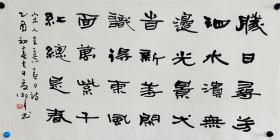 勝日尋芳
泗水濱無
邊光景一
時新等閒
識得東風
面萬紫千
紅總是春
宋人朱熹春日詩
乙酉初春